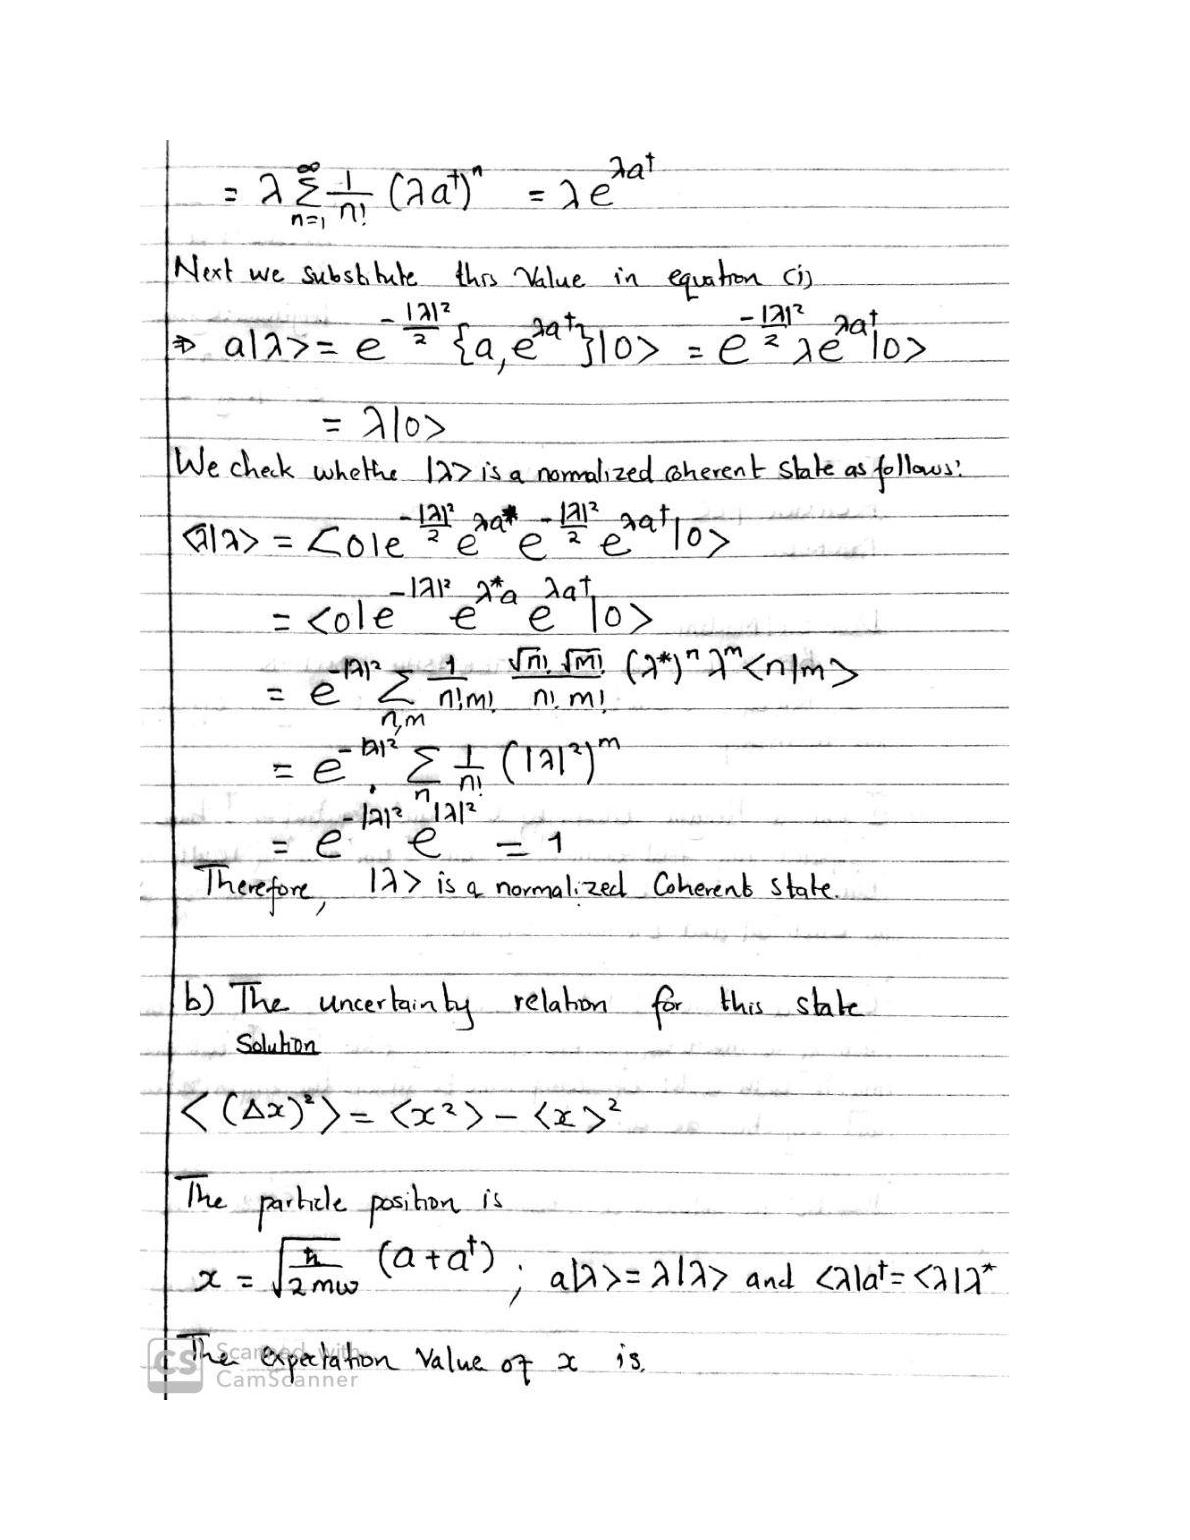 = λ ∞Σn=1 1/n! (λa†)ⁿ = λe^{λa†}
Next we substitute this Value in equation (i)
⇒ a|λ> = e^{-|λ|²/2} {a, e^{λa†}}|0> = e^{-|λ|²/2} λe^{λa†}|0>
= λ|0>
We check whethe |λ> is a normalized coherent state as follows:
<λ|λ> = <0|e^{-|λ|²/2} e^{λa*} e^{-|λ|²/2} e^{λa†}|0>
= <0|e^{-|λ|²} e^{λ*a} e^{λa†}|0>
= e^{-|λ|²} Σn,m 1/n!m! √n! √m!/n! m! (λ*)ⁿ λᵐ <n|m>
= e^{-|λ|²} Σn 1/n! (|λ|²)ᵐ
= e^{-|λ|²} e^{|λ|²} = 1
Therefore, |λ> is a normalized Coherent state.
b) The uncertainty relation for this state
Solution
<(Δx)²> = <x²> - <x>²
The particle position is
x = √ħ/2mω (a + a†) ; a|λ> = λ|λ> and <λ|a† = <λ|λ*
The expectation Value of x is.
CS Scanned with
CamScanner